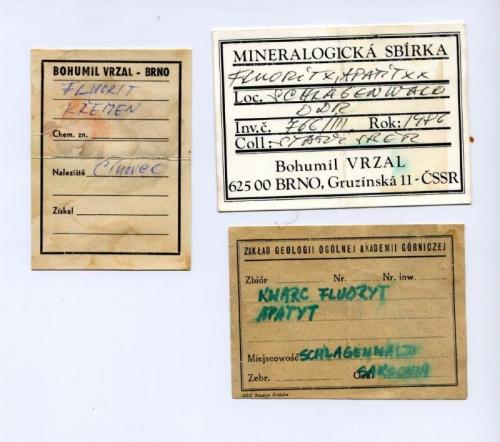 BOHUMIL VRZAL - BRNO
FLUORIT
KŘEMEN
Chem. zn.
Naleziště Cínovec
Získal
MINERALOGICKÁ SBÍRKA
FLUORIT X, APATIT XX
Loc. SCHLAGENWALD
DDR
Inv. č. 766/III Rok: 1986
Coll:
Bohumil VRZAL
625 00 BRNO, Gruzínská 11 - ČSSR
ZAKŁAD GEOLOGII OGÓLNEJ AKADEMII GÓRNICZEJ
Zbiór Nr. Nr. inw.
KWARC FLUORYT
APATYT
Miejscowość SCHLAGENWALD
Zebr.